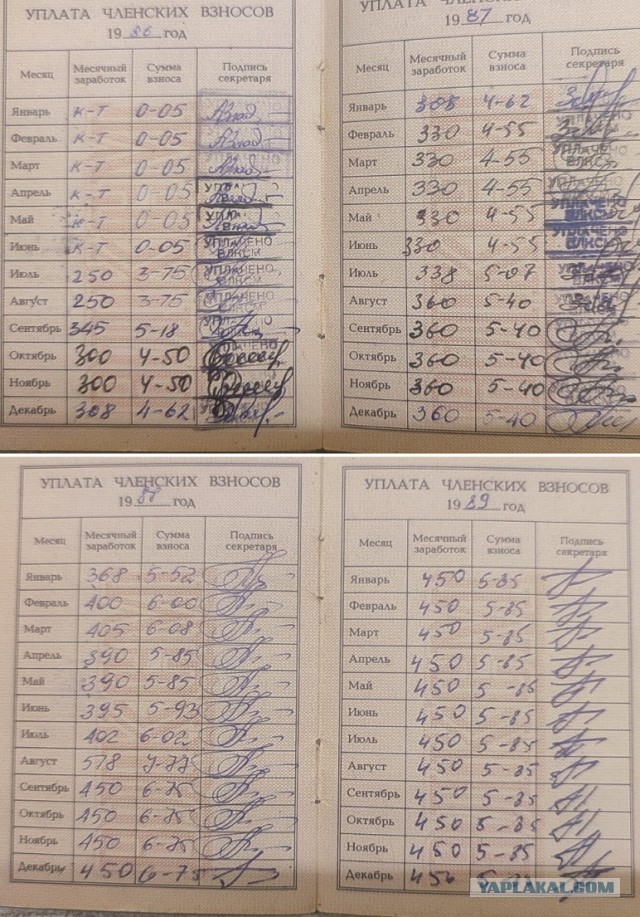 УПЛАТА ЧЛЕНСКИХ ВЗНОСОВ
1986 год
Месяц Месячный заработок Сумма взноса Подпись секретаря
Январь к-т 0-05
Февраль к-т 0-05
Март к-т 0-05
Апрель к-т 0-05
Май к-т 0-05
Июнь к-т 0-05 УПЛАЧЕНО ВЛКСМ
Июль 250 3-75 УПЛАЧЕНО ВЛКСМ
Август 250 3-75
Сентябрь 345 5-18
Октябрь 300 4-50
Ноябрь 300 4-50
Декабрь 308 4-62
УПЛАТА ЧЛЕНСКИХ ВЗНОСОВ
1987 год
Месяц Месячный заработок Сумма взноса Подпись секретаря
Январь 308 4-62
Февраль 330 4-55
Март 330 4-55
Апрель 330 4-55
Май 330 4-55
Июнь 330 4-55
Июль 338 5-07
Август 360 5-40
Сентябрь 360 5-40
Октябрь 360 5-40
Ноябрь 360 5-40
Декабрь 360 5-40
УПЛАТА ЧЛЕНСКИХ ВЗНОСОВ
1988 год
Месяц Месячный заработок Сумма взноса Подпись секретаря
Январь 368 5-52
Февраль 400 6-00
Март 405 6-08
Апрель 390 5-85
Май 390 5-85
Июнь 395 5-93
Июль 402 6-02
Август 578
Сентябрь 450 6-75
Октябрь 450 6-75
Ноябрь 450 6-75
Декабрь 450 6-75
УПЛАТА ЧЛЕНСКИХ ВЗНОСОВ
1989 год
Месяц Месячный заработок Сумма взноса Подпись секретаря
Январь 450 5-85
Февраль 450 5-85
Март 450 5-85
Апрель 450 5-85
Май 450 5-85
Июнь 450 5-85
Июль 450 5-85
Август 450 5-85
Сентябрь 450 5-85
Октябрь 450 5-85
Ноябрь 450 5-85
Декабрь 450
YAPLAKAL.COM